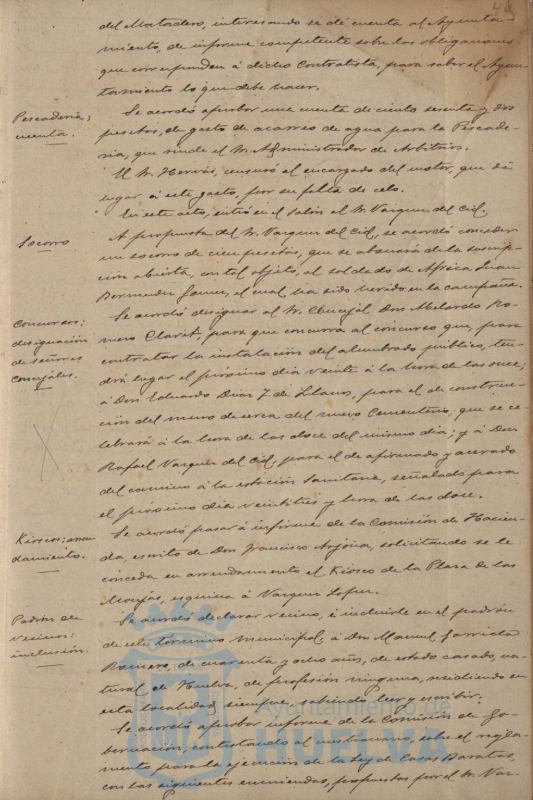 48
del Matadero, interesando se dé cuenta al Ayunta-
miento, de informe competente sobre las obligaciones
que corresponden á dicho Contratista, para saber el Ayun-
tamiento lo que debe hacer.
Pescadería;
cuenta.
Se acordó aprobar una cuenta de ciento sesenta y dos
pesetas, de gasto de acarreo de agua para la Pescade-
ría, que rinde el Sr. Administrador de Arbitrios.
El Sr. Hervás, censuró el encargado del motor, que dá
lugar á este gasto, por su falta de celo.
En este acto, entró en el Salón el Sr. Vazquez del Cid.
Socorro
A propuesta del Sr. Vazquez del Cid, se acordó conceder
un socorro de cien pesetas, que se abonará de la suscrip-
ción abierta, con tal objeto, al soldado de Africa Juan
Bermudez Gomez, el cual ha sido herido en la campaña.
Concursos;
designación
de señores
Concejales.
Se acordó designar al Sr. Concejal Don Abelardo Ro-
mero Claret, para que concurra al concurso que, para
contratar la instalación del alumbrado público, ten-
drá lugar el próximo dia veinte á la hora de las once;
á Don Eduardo Diaz F. de Llanos, para el de construc-
ción del muro de cerca del nuevo Cementerio, que se ce-
lebrará á la hora de las doce del mismo dia; y á Don
Rafael Vazquez del Cid, para el de afirmado y acerado
del camino á la estación Sanitaria, señalado para
el próximo dia veintitres y hora de las doce.
Kiosco; arren-
damiento.
Se acordó pasar á informe de la Comisión de Hacien-
da, escrito de Don Francisco Arjona, solicitando se le
conceda en arrendamiento el Kiosco de la Plaza de las
Monjas, esquina á Vazquez Lopez.
Padrón de
vecinos:
inclusión.
Se acordó declarar vecino, é incluirle en el padrón
de este termino municipal, á Don Manuel Garrido
Romero, de cuarenta y ocho años, de estado casado, na-
tural de Huelva, de profesión ninguna, residiendo en
esta localidad siempre, sabiendo leer y escribir.
Se acordó aprobar informe de la Comisión de Go-
bernación, contestando al cuestionario, sobre el regla-
mento para la ejecución de la Ley de Casas Baratas,
con las siguientes enmiendas, propuestas por el Sr. Vaz-
Ayuntamiento de
HUELVA